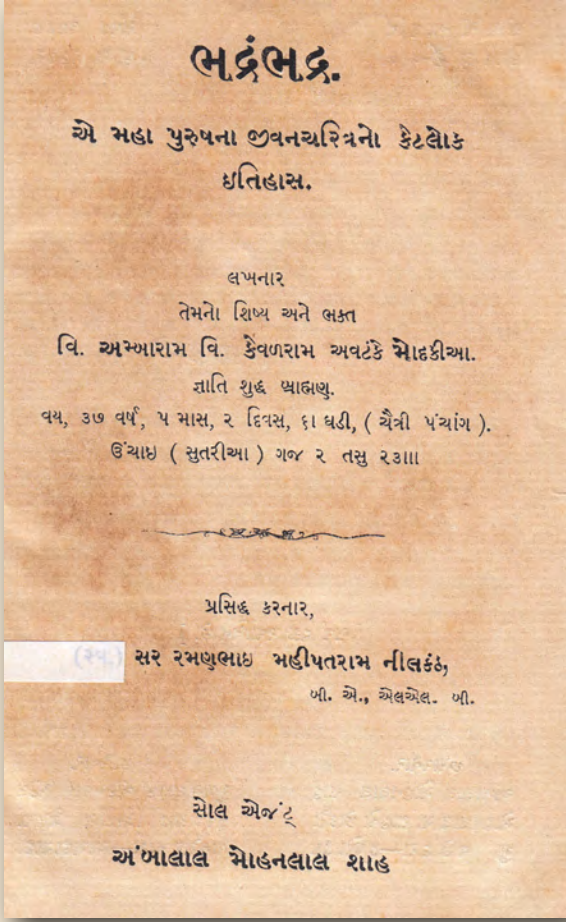 ભદ્રંભદ્ર.
એ મહા પુરુષના જીવનચરિત્રનો કેટલોક
ઇતિહાસ.
લખનાર
તેમનો શિષ્ય અને ભક્ત
વિ. અમ્બારામ વિ. કેવળરામ અવટંકે મોદકીઆ.
જ્ઞાતિ શુદ્ધ બ્રાહ્મણ.
વય, ૩૭ વર્ષ, ૫ માસ, ૨ દિવસ, ૬ા ઘડી, ( ચૈત્રી પંચાંગ ).
ઉંચાઇ ( સુતરીઆ ) ગજ ૨ તસુ ૨૩ાાા
પ્રસિદ્ધ કરનાર,
સર રમણભાઇ મહીપતરામ નીલકંઠ,
બી. એ., એલએલ. બી.
સોલ એજંટ્
અંબાલાલ મોહનલાલ શાહ